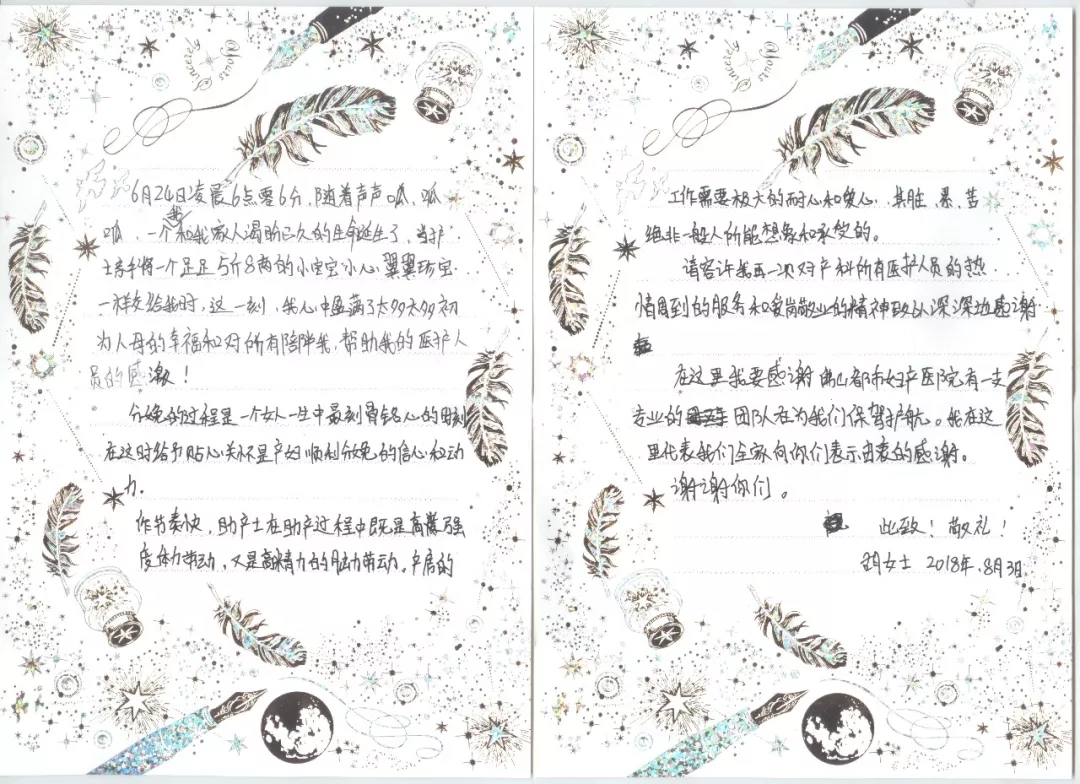 Sincerely
@Yours
6月24日凌晨6点零6分，随着声声呱，呱
呱，一个我和我家人渴盼已久的生命诞生了，当护
士亲手将一个足足5斤8两的小宝宝小心翼翼珍宝
一样交给我时，这一刻，我心中盈满了太多太多初
为人母的幸福和对所有陪伴我，帮助我的医护人
员的感激！
分娩的过程是一个女人一生中最刻骨铭心的时刻
在这时给予贴心关怀是产妇顺利分娩的信心和动
力。
作节奏快，助产士在助产过程中既是高强
度体力劳动，又是高精力的脑力劳动。产房的
Sincerely
@Yours
工作需要极大的耐心和爱心，其脏、累、苦
绝非一般人所能想象和承受的。
请容许我再一次对产科所有医护人员的热
情周到的服务和爱岗敬业的精神致以深深地感谢
在这里我要感谢佛山都市妇产医院有一支
专业的团队在为我们保驾护航。我在这
里代表我们全家向你们表示由衷的感谢。
谢谢你们。
此致！敬礼！
女士 2018年.8月3日